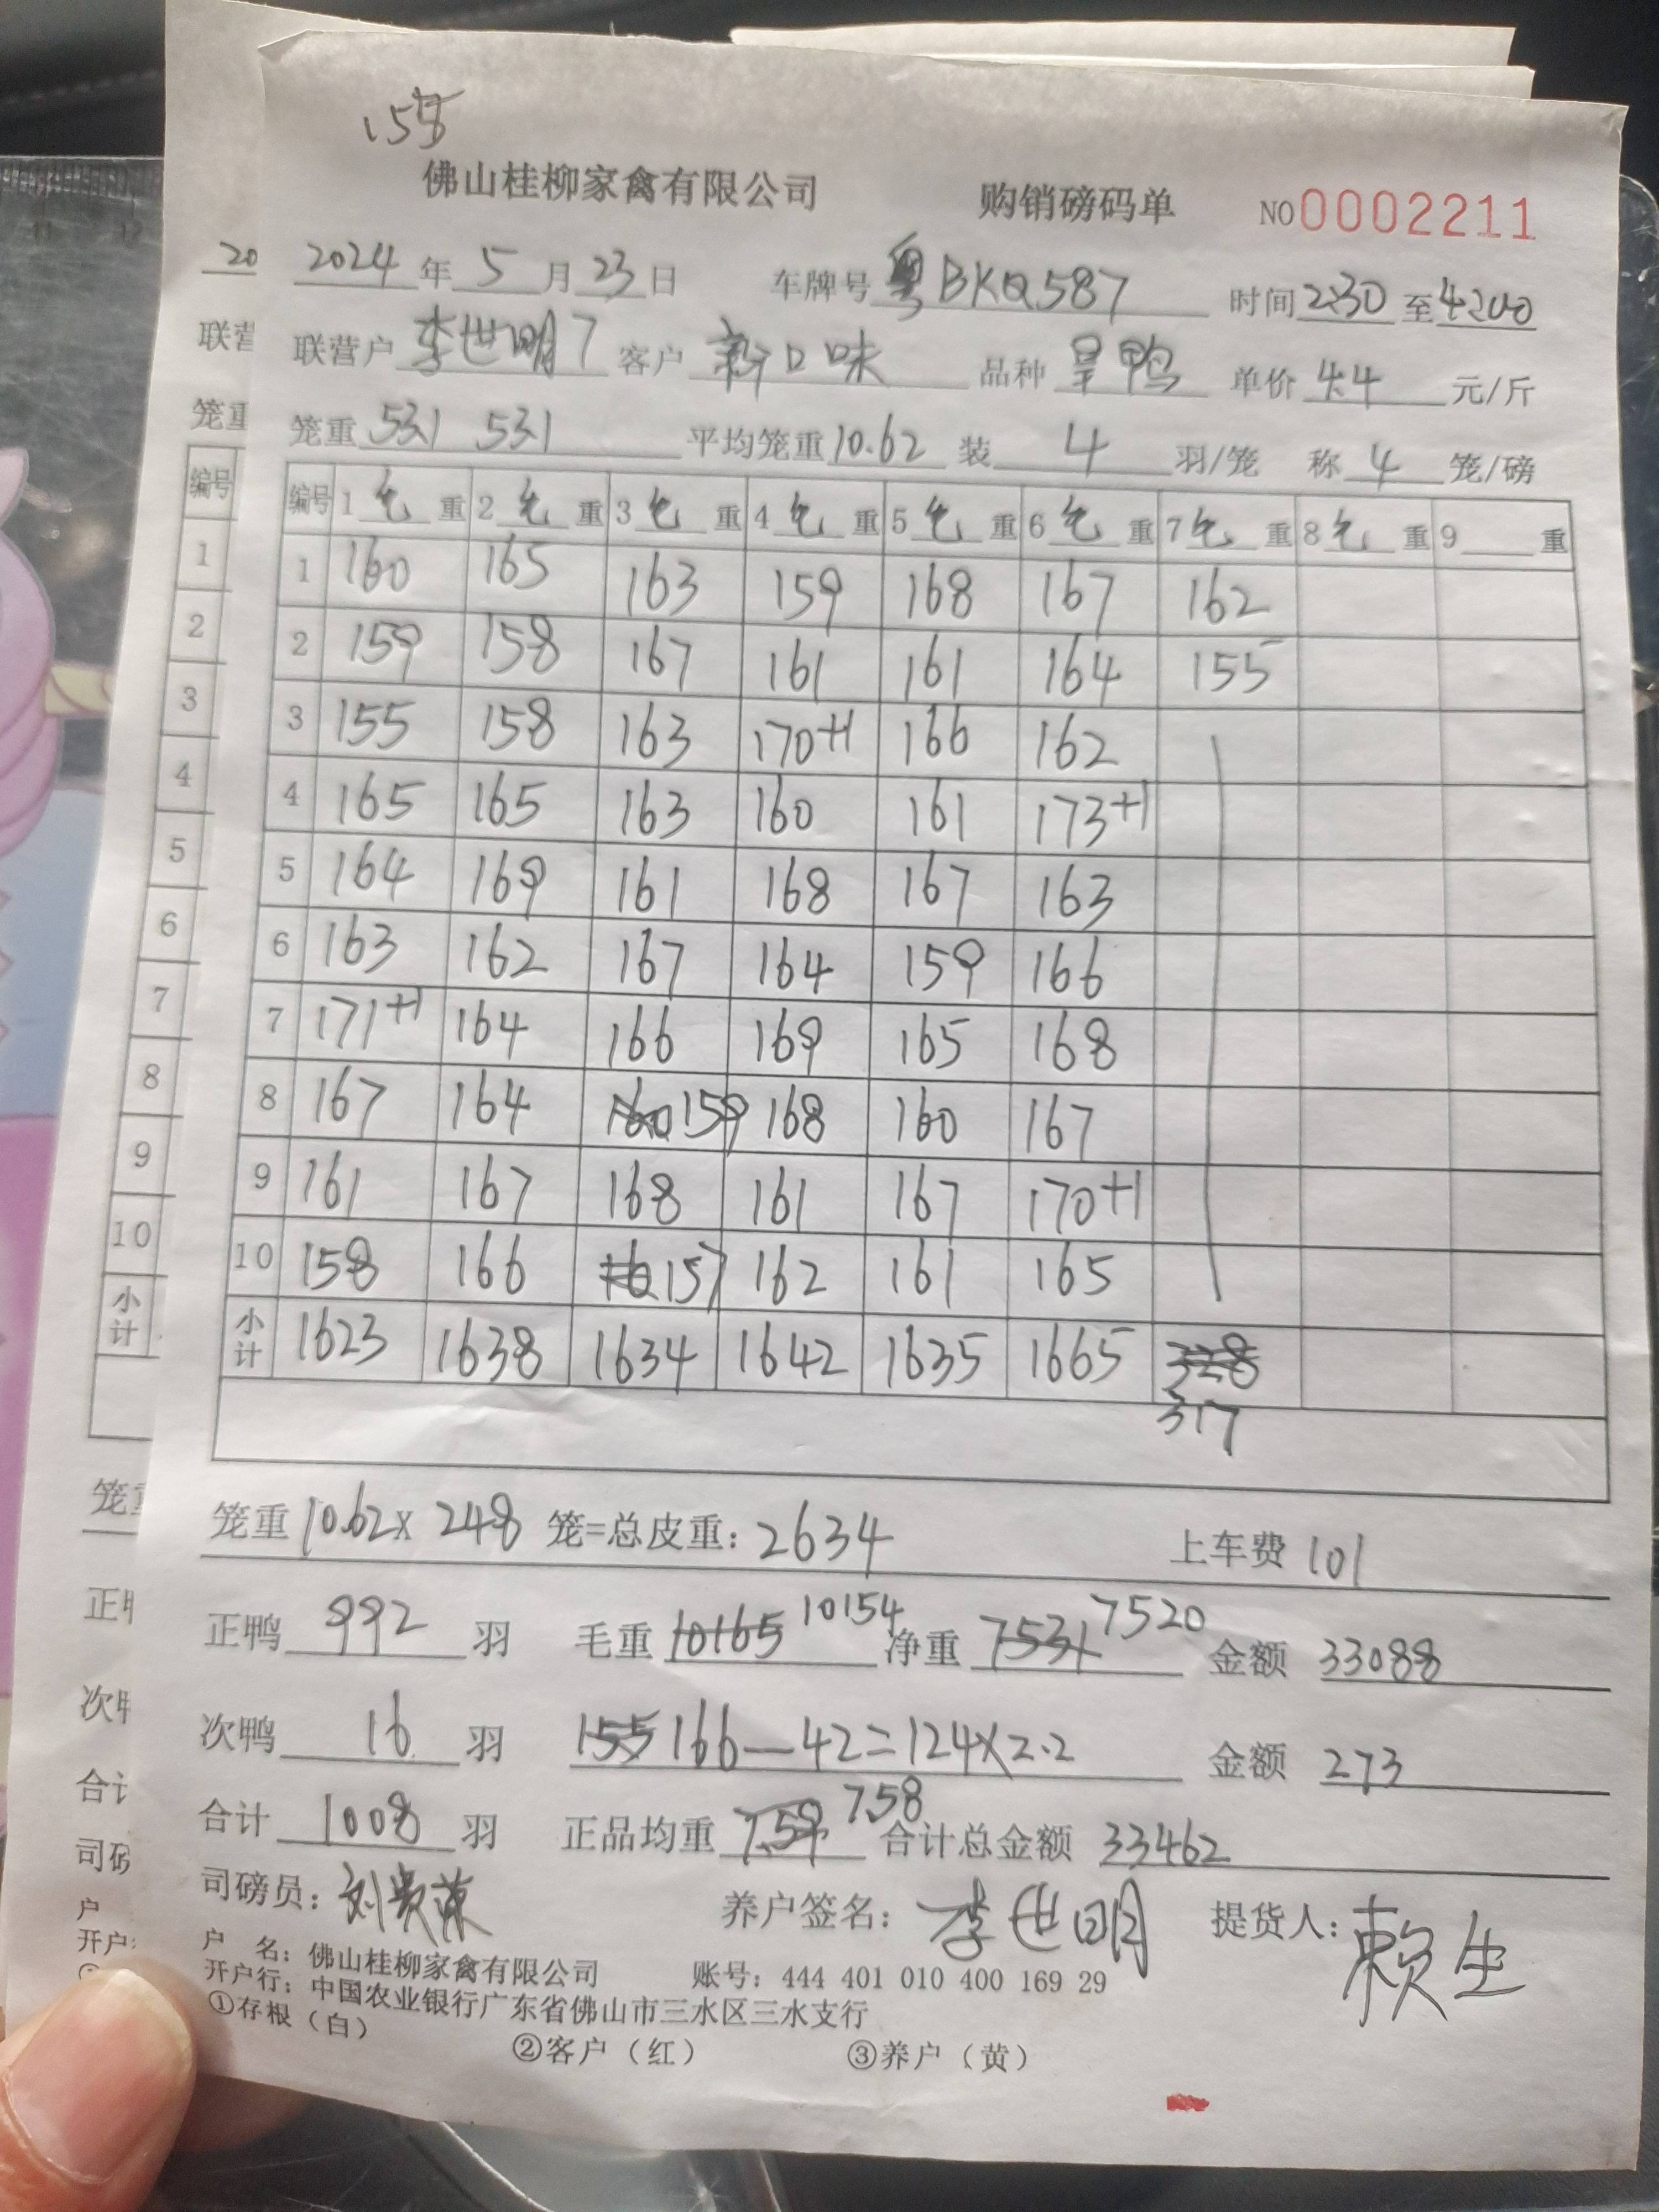 佛山桂柳家禽有限公司 购销磅码单 NO0002211
2024年5月23日 车牌号粤BKQ587 时间2:30至4:00
联营户李世明7 客户新口味 品种 单价4.4元/斤
笼重531 531 平均笼重10.62 装4羽/笼 称4笼/磅
编号 1毛重 2毛重 3毛重 4毛重 5毛重 6毛重 7毛重 8毛重 9重
1 160 165 163 159 168 167 162
2 159 158 167 161 161 164 155
3 155 158 163 170+1 166 162
4 165 165 163 160 161 173+1
5 164 169 161 168 167 163
6 163 162 167 164 159 166
7 171+1 164 166 169 165 168
8 167 164 160 159 168 160 167
9 161 167 168 161 167 170+1
10 158 166 157 162 161 165
小计 1623 1638 1634 1642 1635 1665 328
317
笼重10.62×248笼=总皮重:2634 上车费101
正鸭992羽 毛重10165 10154 净重7531 7520 金额33088
次鸭16羽 155 166—42=124×2.2 金额273
合计1008羽 正品均重7.59 7.58 合计总金额33462
司磅员: 养户签名:李世明 提货人:赖生
户 名:佛山桂柳家禽有限公司 账号:444 401 010 400 169 29
开户行:中国农业银行广东省佛山市三水区三水支行
①存根(白) ②客户(红) ③养户(黄)
20
联营
笼重
编号
1
2
3
4
5
6
7
8
9
10
小计
笼重
正
次
合计
司磅
户
开户